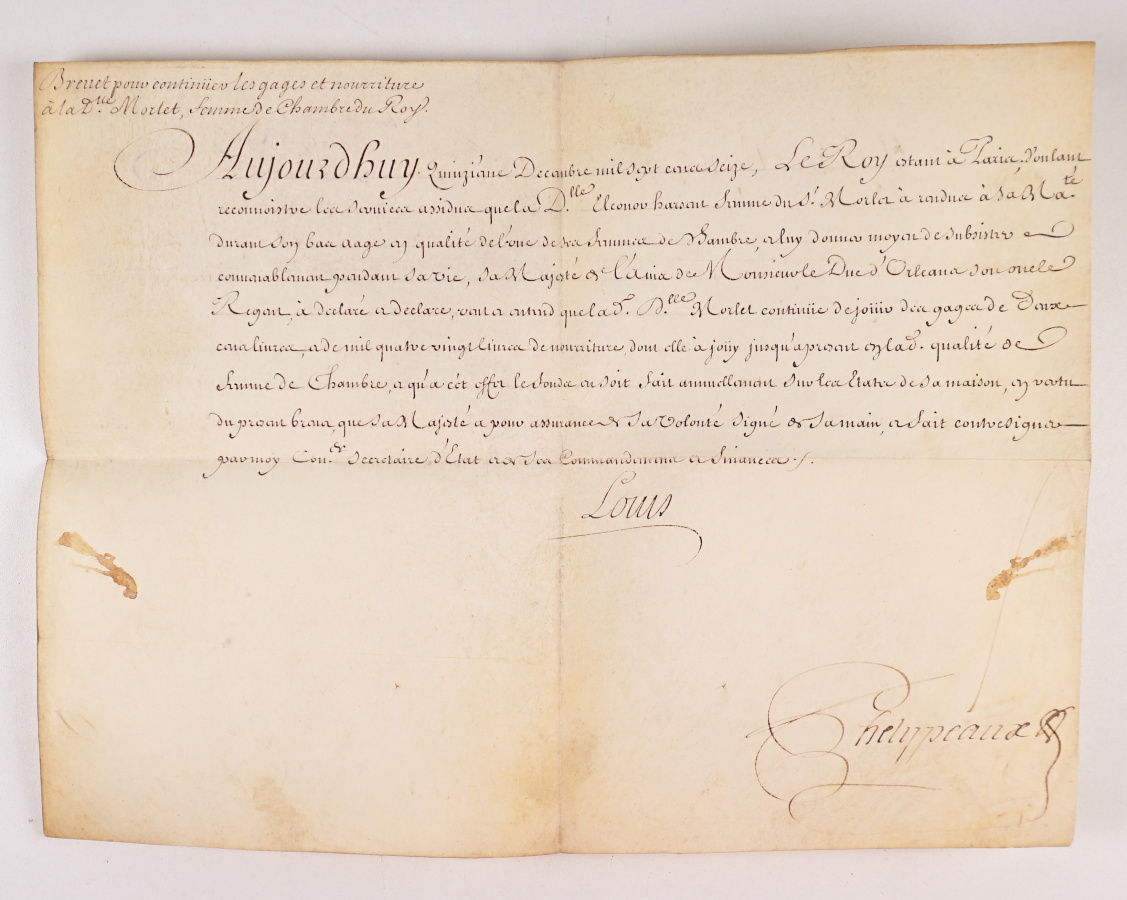 Brevet pour continüer les gages et nourriture
à la D.lle Morlet, femme de Chambre du Roy.
Aujourdhuy Quinziême Decembre mil sept cens seize, Le Roy estant à Paris, Voulant
reconnoistre les services assidus que la D.lle Eleonor harsent femme du S.r Morlet à rendus à Sa Ma.té
durant son bas aage en qualité de l'une de ses femmes de Chambre, et luy donner moyen de subsister
convenablement pendant sa vie, sa Majesté de l'avis de Monsieur le Duc d'Orleans son oncle
Regent, à declaré et declare, veut et entend que lad. D.lle Morlet continüe de joüir des gages de Deux
cens livres, et de mil quatre vingt livres de nourriture, dont elle à joüy jusqu'a present en lad. qualité de
femme de Chambre, et qu'a cét effet le fonds en soit fait annuellement sur les Etats de sa maison, en vertu
du present brevet, que sa Majesté a pour assurance de sa Volonté signé de sa main, et fait contresigner
par moy Con.er Secretaire d'Etat et de ses Commandemens et finances ./.
Louis
Phelypeaux